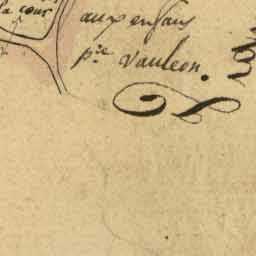 la cour
aux enfans
p.re Vauleon.